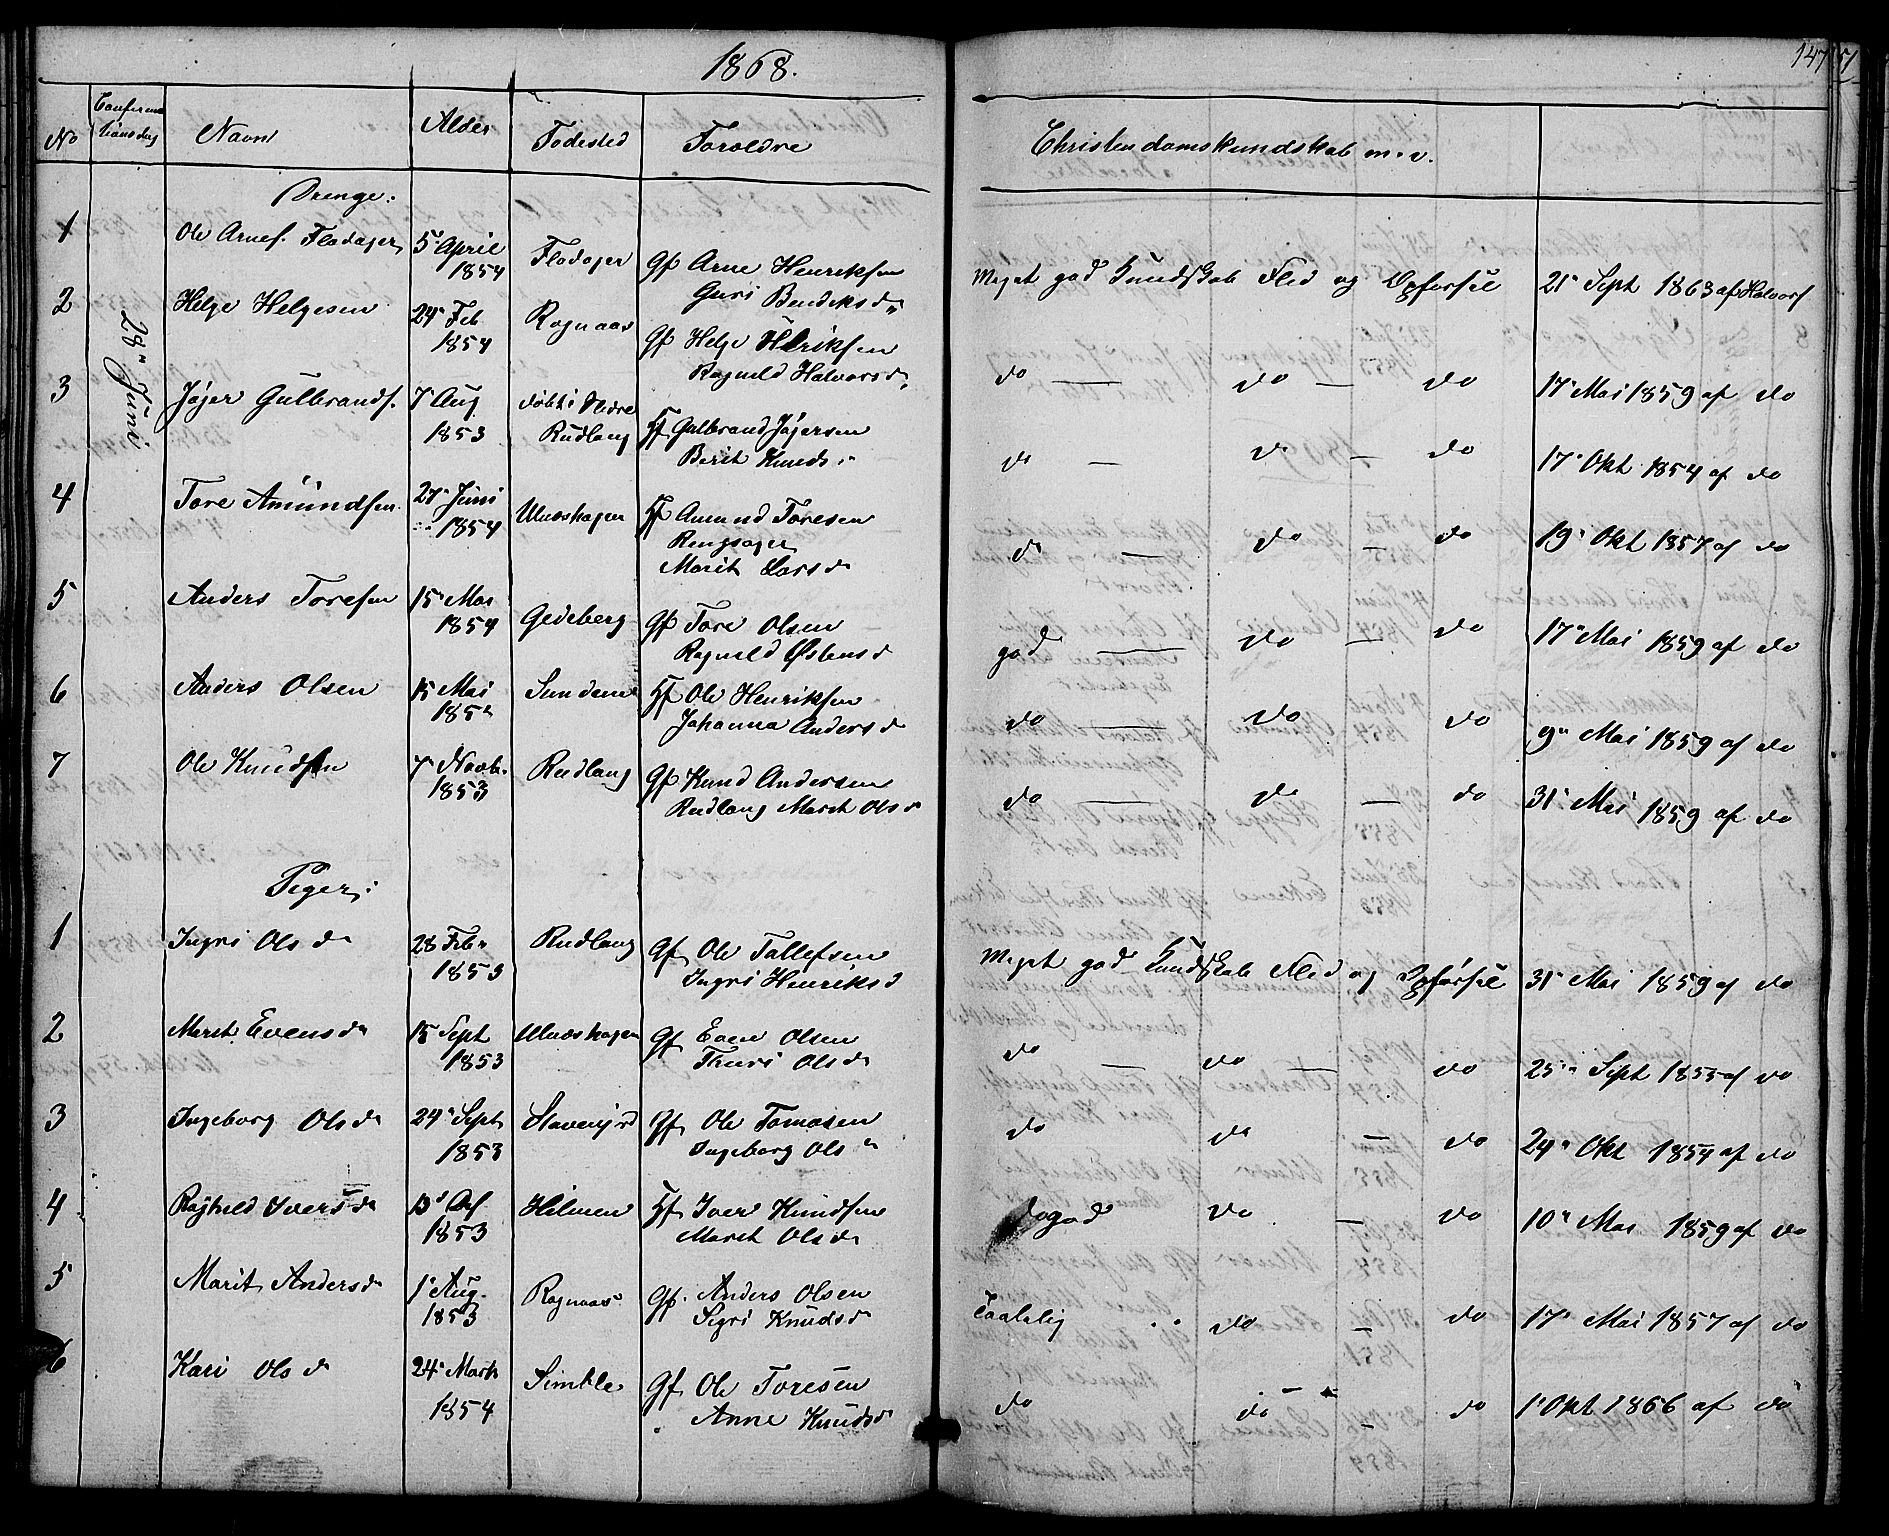 1868.
147
No
Confirmationsdag
Navn
Alder
Fodested
Foroldre
Christendomskundskab m. v.
28n Juni
Drenge:
1 Ole Arnes. Flodager 5 April 1854 Flodager Gf Arne Henriksen Guri Bendiksd. Meget god Kundskab Flid og Opførsel 21 Sept 1863 af Halvors
2 Helge Helgesen 24 Feb 1854 Rognaas Gf Helge Eriksen Ragnild Halvorsd. do — do — do 17 Mai 1859 af do
3 Jøger Gulbrands. 7 Aug 1853 Rudlang Gf Gulbrand Jøgersen Berit Knuds do — do — do 17 Okt 1854 af do
4 Tore Amundsen 27 Juni 1854 Ulnæshagen Gf Amund Toresen Rengsager Marit Larsd do — do — do 19 Okt 1857 af do
5 Anders Toresen 15 Mai 1854 Gedeberg Gf Tore Olsen Ragnild Østensd god — do — do 17 Mai 1859 af do
6 Anders Olsen 15 Mai Sundene Gf Ole Henriksen Johanna Andersd do — do do 9n Mai 1859 af do
7 Ole Knudsen 7 Novb. 1853 Rudlang Gf Knud Andersen Rudlang Marit Olsd do — do — do 31 Mai 1859 af do
Piger:
1 Ingri Olsd 28 Feb 1853 Rudlang Gf Ole Tollefsen Ingri Henriksd Meget god Kundskab Flid og Opførsel 31 Mai 1859 af do
2 Marit Evensd 15 Sept 1853 Ulnæshagen Gf Even Olsen Thuri Olsd do — do — do 25 Sept 1855 af do
3 Ingeborg Olsd 24 Sept 1853 Gf Ole Tomasen Ingeborg Ols do do — do 24 Okt 1854 af do
4 Ragnild Iversd 13 1853 Hilmen Gf Iver Knudsen Marit Olsd do god do — do 10 Mai 1859 af do
5 Marit Andersd 1 Aug. 1853 Rognaas Gf. Anders Olsen Sigri Knudsd Taalelig do — do 17 Mai 1857 af do
6 Kari Olsd 24 Marts 1854 Simble Gf Ole Toresen Anne Knudsd do do — do 1 Okt 1866 af do